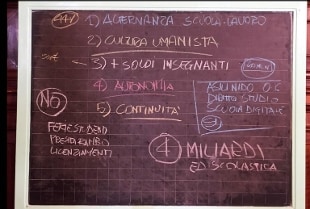 1) ALTERNANZA SCUOLA-LAVORO
2) CULTURA UMANISTA
3) + SOLDI INSEGNANTI
4) AUTONOMIA
5) CONTINUITÀ
NO
ASILI NIDO 0-6
DIRITTO STUDIO
SCUOLA DIGITALE
LICENZIAMENTI
4 MILIARDI
ED. SCOLASTICA